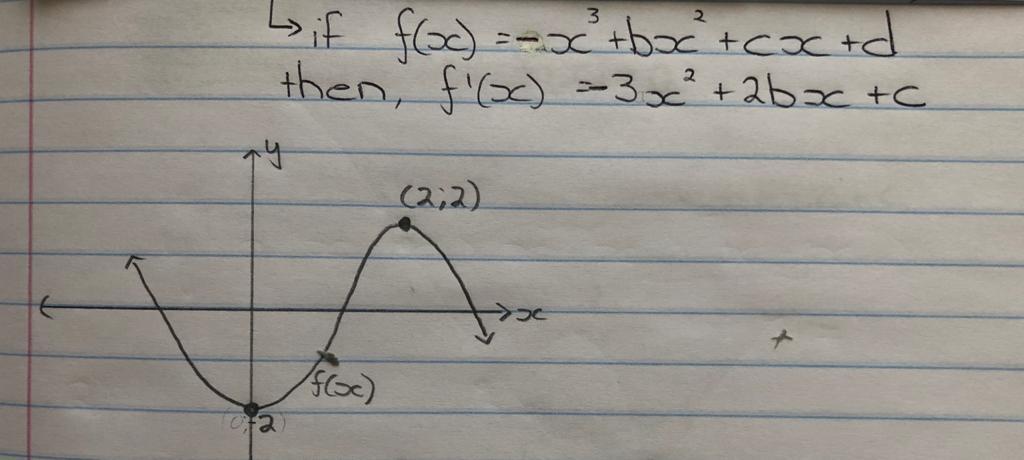 ↳ if f(x) = -x³ + bx² + cx + d
then, f'(x) = -3x² + 2bx + c
y
(2;2)
x
f(x)
-2